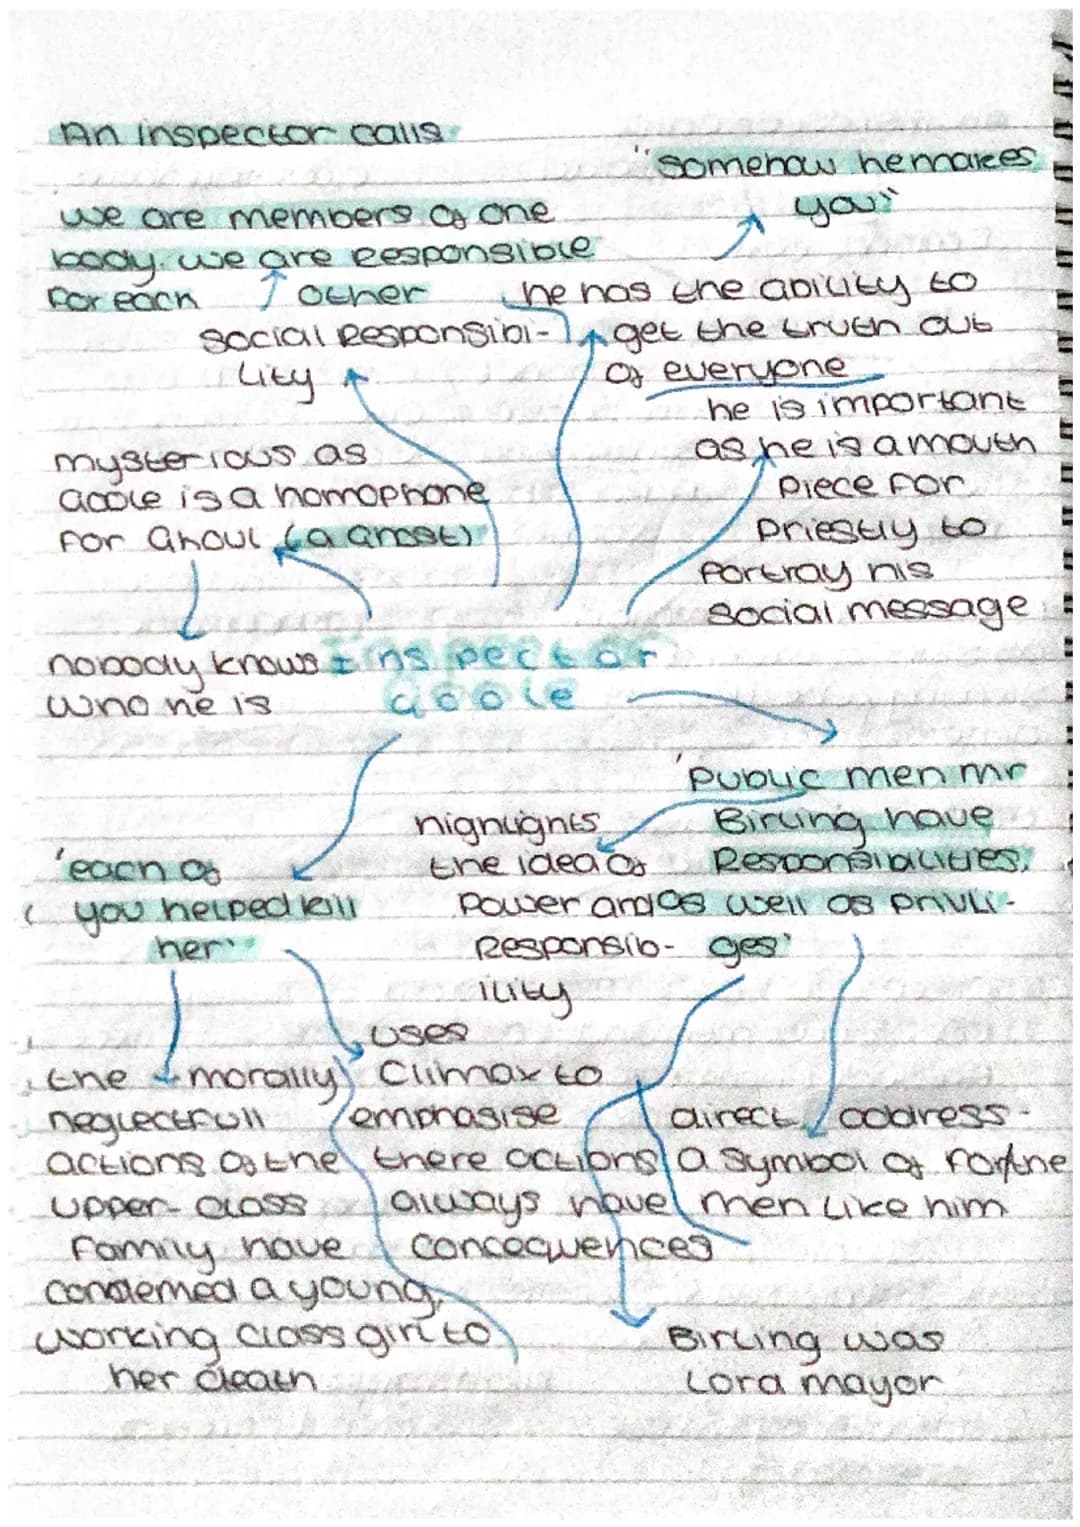 An Inspector calls
"somehow he makes
you"
we are members of one
body. we are responsible
for each other
social Responsibi-
lity
he has the ability to
get the truth out
of everyone
he is important
as he is a mouth
piece for
Priestly to
portray his
social message
mysterious as
Goole is a homophone
for Ghoul (a Ghost)
nobody knows
who he is
Inspector
Goole
'Public men mr
Birling have
Responsibilities.
as well as privili-
ges'
highlights
the idea of
Power and
Responsib-
ility
'each of
you helped kill
her'
the morally
neglectfull
actions of the
upper-class
family have
condemed a young,
working class girl to
her death
uses
Climax to
emphasise
there actions
always have
concequences
direct address-
a symbol of for the
men like him
Birling was
Lord mayor